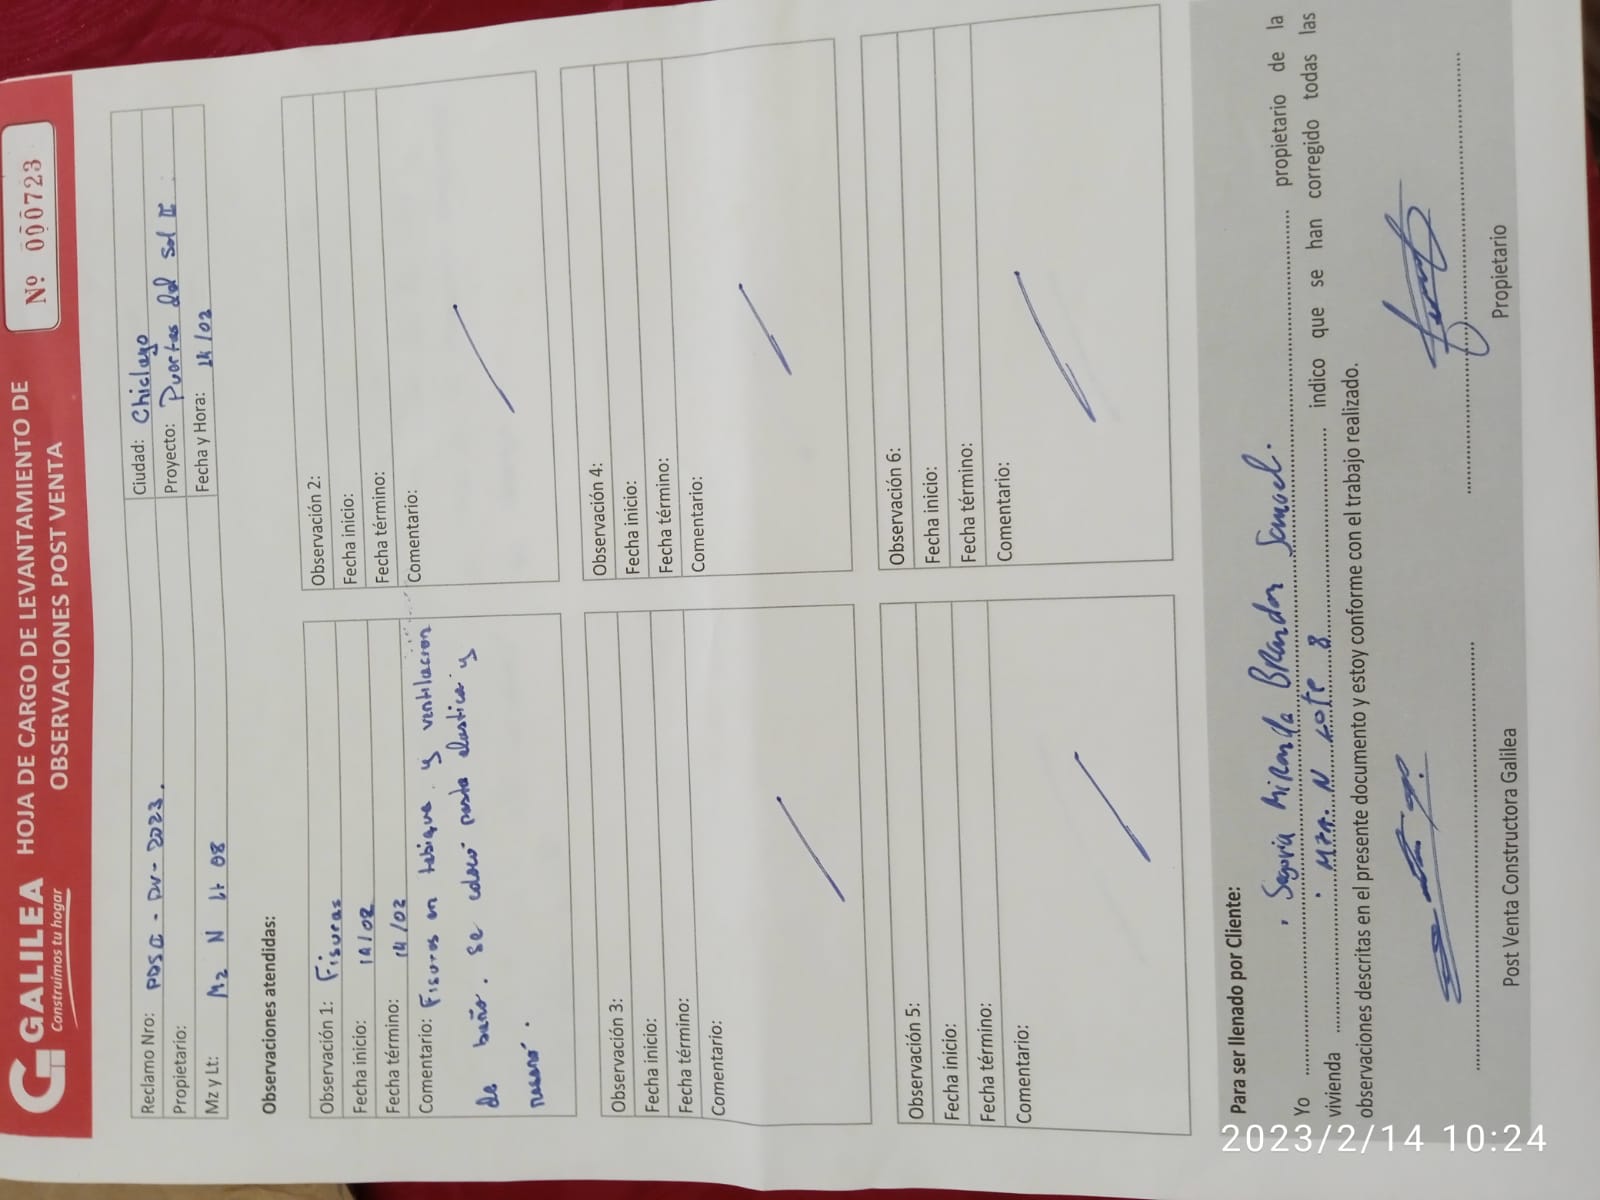 GALILEA
Construimos tu hogar
HOJA DE CARGO DE LEVANTAMIENTO DE
OBSERVACIONES POST VENTA
Nº 000723
Reclamo Nro: PDSII - PV - 2023.
Ciudad: Chiclayo
Propietario:
Proyecto: Puertas del Sol II
Mz y Lt: Mz N Lt 08
Fecha y Hora: 14/02
Observaciones atendidas:
Observación 1: Fisuras
Fecha inicio: 14/02
Fecha término: 14/02
Comentario: Fisuras en tabique y ventilacion
de baño. se coloco pasta elastica y
resano.
Observación 2:
Fecha inicio:
Fecha término:
Comentario:
Observación 3:
Fecha inicio:
Fecha término:
Comentario:
Observación 4:
Fecha inicio:
Fecha término:
Comentario:
Observación 5:
Fecha inicio:
Fecha término:
Comentario:
Observación 6:
Fecha inicio:
Fecha término:
Comentario:
Para ser llenado por Cliente:
Yo Segovia Miranda Brandon Samael. propietario de la
vivienda Mza. N Lote 8 indico que se han corregido todas las
observaciones descritas en el presente documento y estoy conforme con el trabajo realizado.
Post Venta Constructora Galilea
Propietario
2023/2/14 10:24